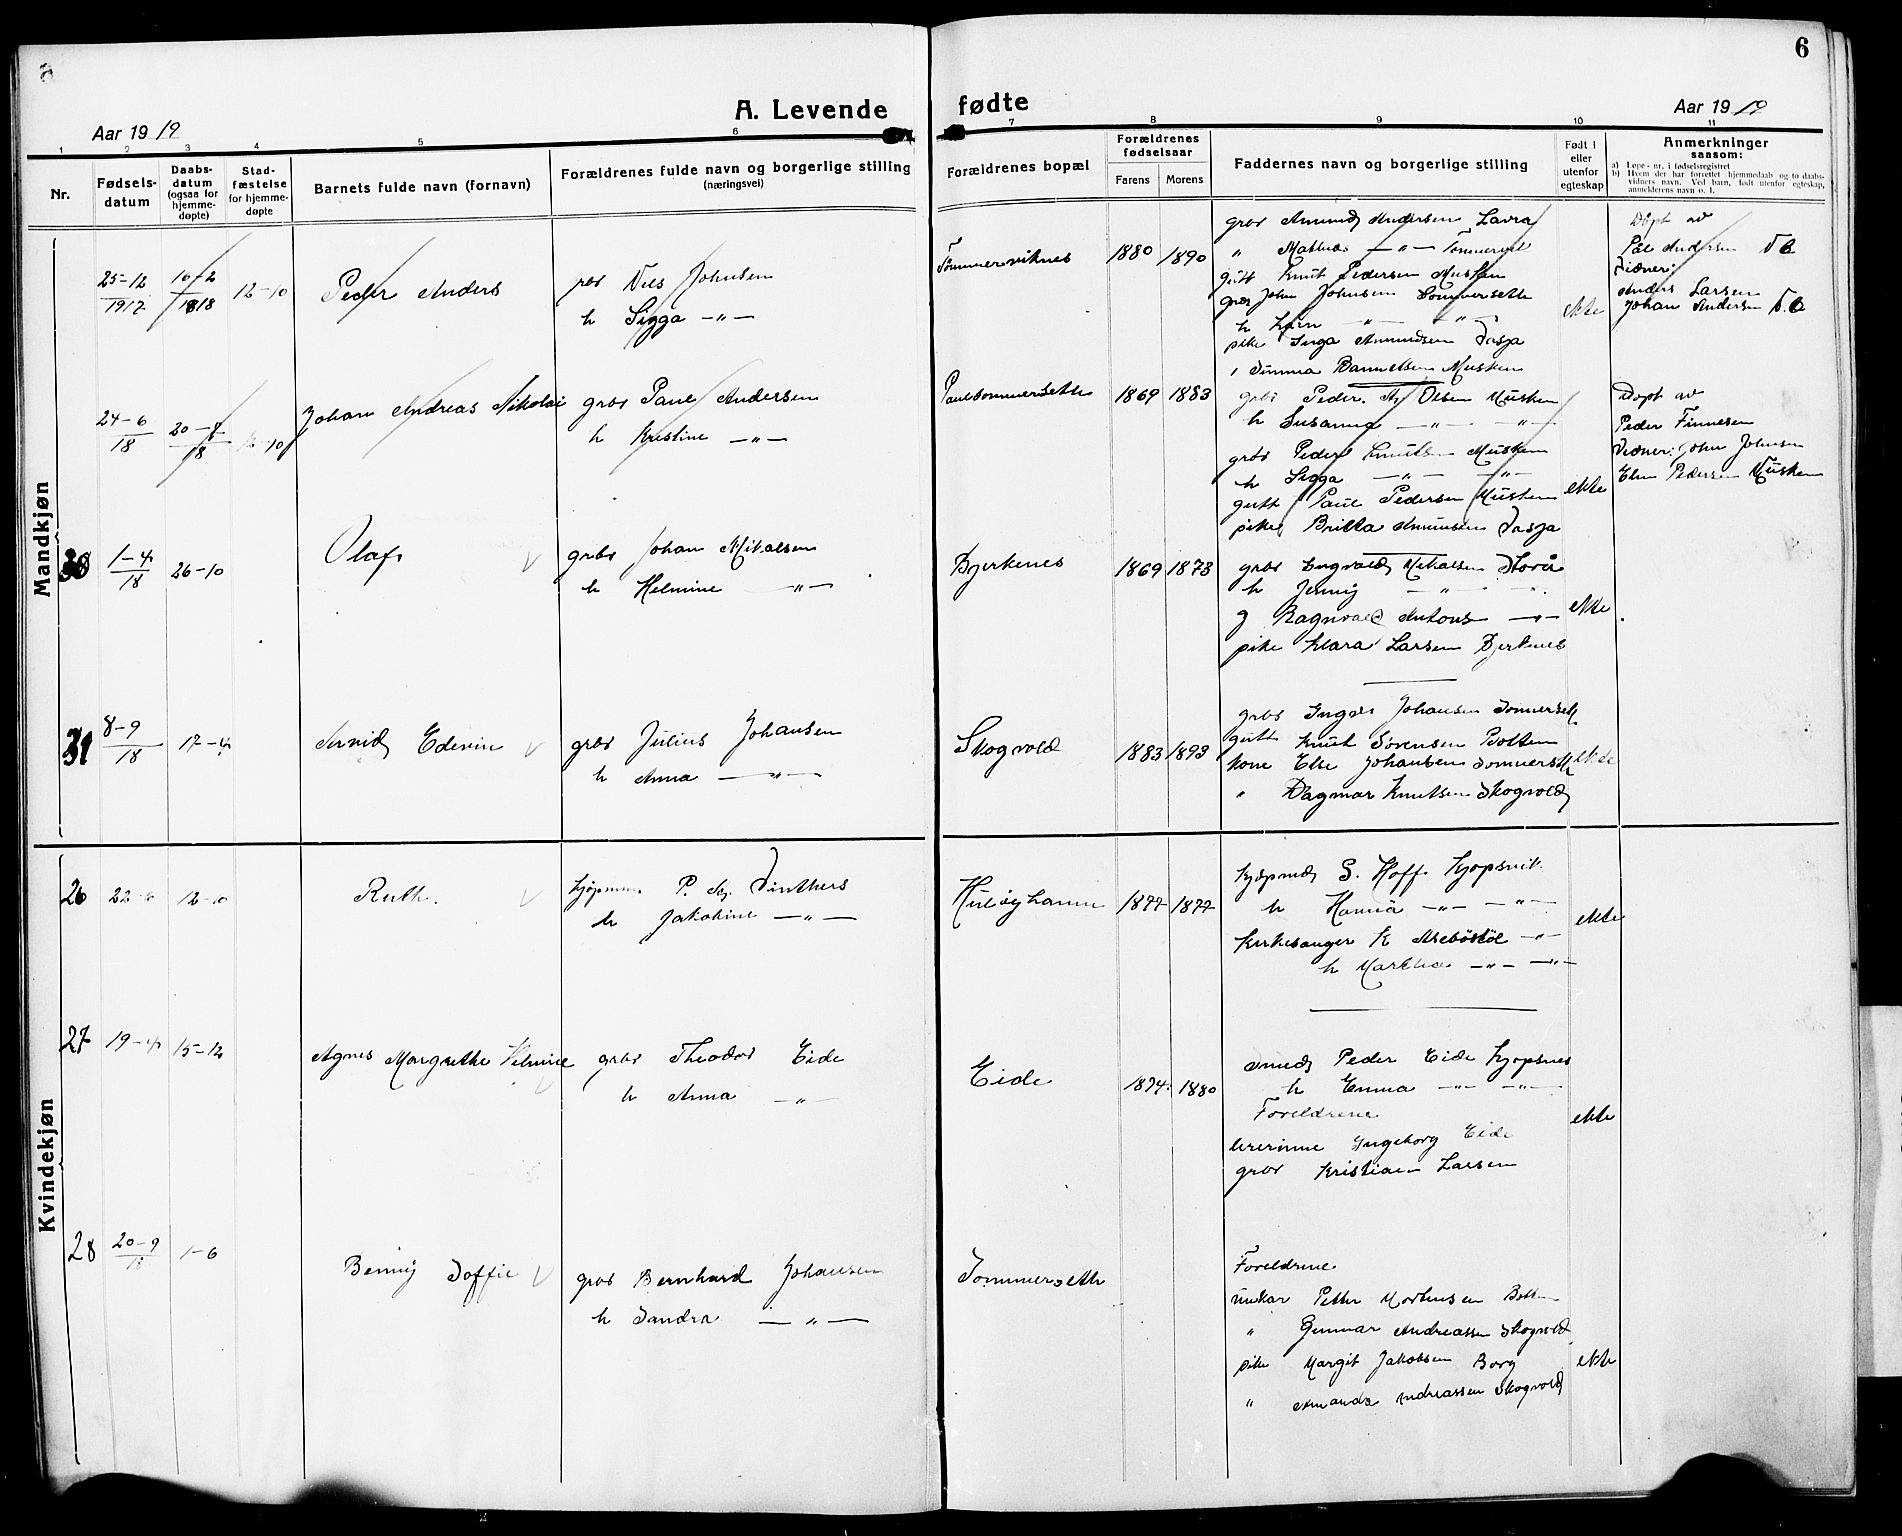 6
A. Levende fødte
Aar 1919
Aar 1919
1 2 3 4 5 6 7 8 9 10 11
Nr.
Fødsels-
datum
Daabs-
datum
(ogsaa for
hjemme-
døpte)
Stad-
fæstelse
for hjemme-
døpte
Barnets fulde navn (fornavn)
Forældrenes fulde navn og borgerlige stilling
(næringsvei)
Forældrenes bopæl
Forældrenes
fødselsaar
Farens Morens
Faddernes navn og borgerlige stilling
Født i
eller
utenfor
egteskap
Anmerkninger
saasom:
a) Løpe-nr. i fødselsregistret
b) Hvem der har forrettet hjemmedaab og to daabs-
vidners navn. Ved barn, født utenfor egteskap,
anmelderens navn o. l.
Mandkjøn
25-12
1917
16-2
1918
12-10
Peder Anders
grbr Nils Johnsen
h Sigga -"-
Tømmerviknes
1880 1890
grbr Amund Andersen Lavra
" Mathias -"-
gutt Knut Pedersen Musken
grbr John Johnsen Sommersette
h Karn " "
pike Inga Amundsen
" Bannelsen Musken
ekte
Døpt av
Pål Andersen
Vidner:
Anders Larsen
Johan Andersen
24-6
18
20-8
18
12-10
Johan Andreas Nikolai
grbr Paul Andersen
h Kristine -"-
Paulsommersette
1869 1883
grbr Peder A. Olsen Musken
h Susanna -"- -"-
grbr Peder Knutsen Musken
h Sigga -"- -"-
gutt Paul Pedersen Musken
pike Britta Amundsen
ekte
Døpt av
Peder Finnesen
Vidner: John Johnsen
Elen Pedersen Musken
30
1-4
18
26-10
Olaf
grbr Johan Mikalsen
h Helmine -"-
Bjerkenes
1869 1873
grbr Ingvald Mikalsen Storå
h Jenny -"-
g Ragnvald Antons -"-
pike Klara Larsen Bjerknes
ekte
31
8-9
18
17-4
Arvid Edevin
grbr Julius Johansen
h Anna -"-
Skogvold
1883 1893
grbr Johansen Sommerset
gutt Knut Sørensen Botten
kone Else Johansen Sommerset
" Dagmar Knutsen Skogvold
ekte
Kvindekjøn
26
22-6
12-10
Ruth.
P. Vinthers
h Jakobine -"-
Hulløyhamn
1877 1877
kjøpmd S. Hoff Kjøpsvik
h Hanna -"- -"-
Kirkesanger K -"-
h Martha -"- -"-
ekte
27
19-4
15-12
Agnes Margrethe Helmine
grbr Theodor Eide
h Anna -"-
Eide
1874 1880
smed Peder Eide Kjøpsnes
h Emma -"- -"-
Foreldrene
lererinne Ingeborg Eide
grbr Kristian Larsen
ekte
28
20-9
18
1-6
Benny Soffie
grbr Bernhard Johansen
h Sandra -"-
Sommerseth
Foreldrene
unkar Petter Mortensen Botten
" Gunnar Andreassen Skogvold
pike Margit Jakobsen Borg
" Amanda Andreassen Skogvold
ekte